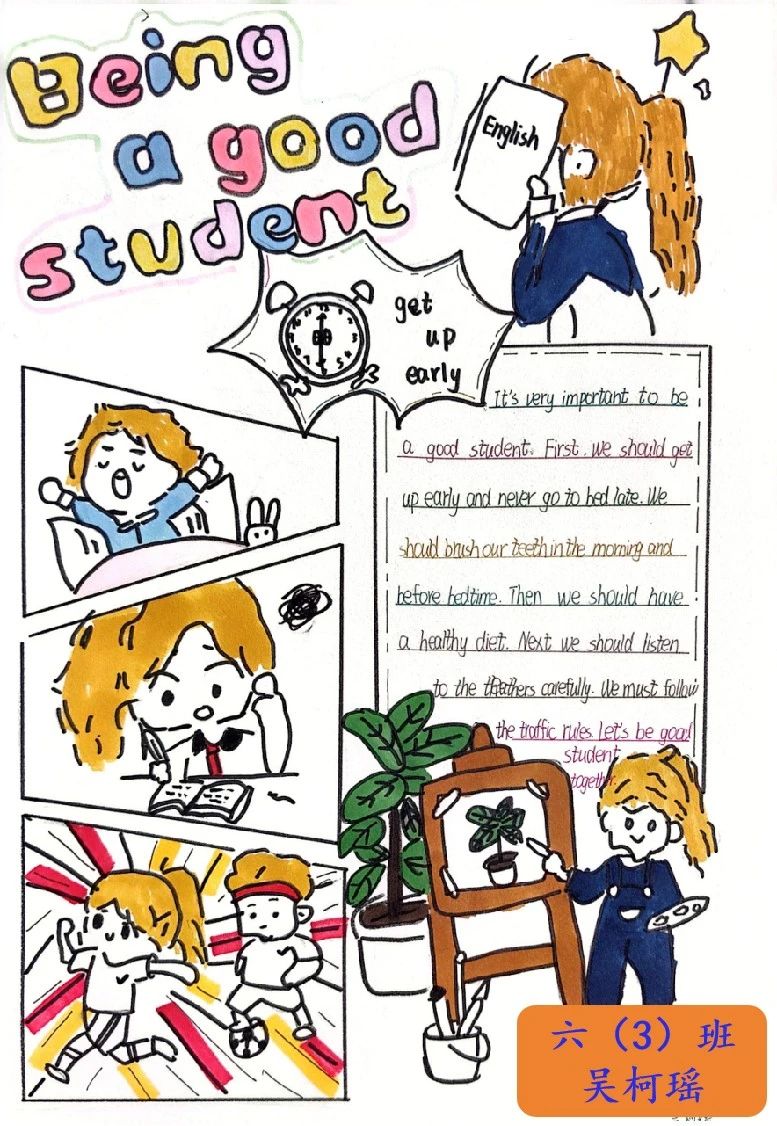 Being
a good
student
English
get
up
early
It's very important to be
a good student. First, we should get
up early and never go to bed late. We
should brush our teeth in the morning and
before bedtime. Then we should have
a healthy diet. Next we should listen
to the teathers carefully. We must follow
the traffic rules Let's be good
student
together.
六（3）班
吴柯瑶